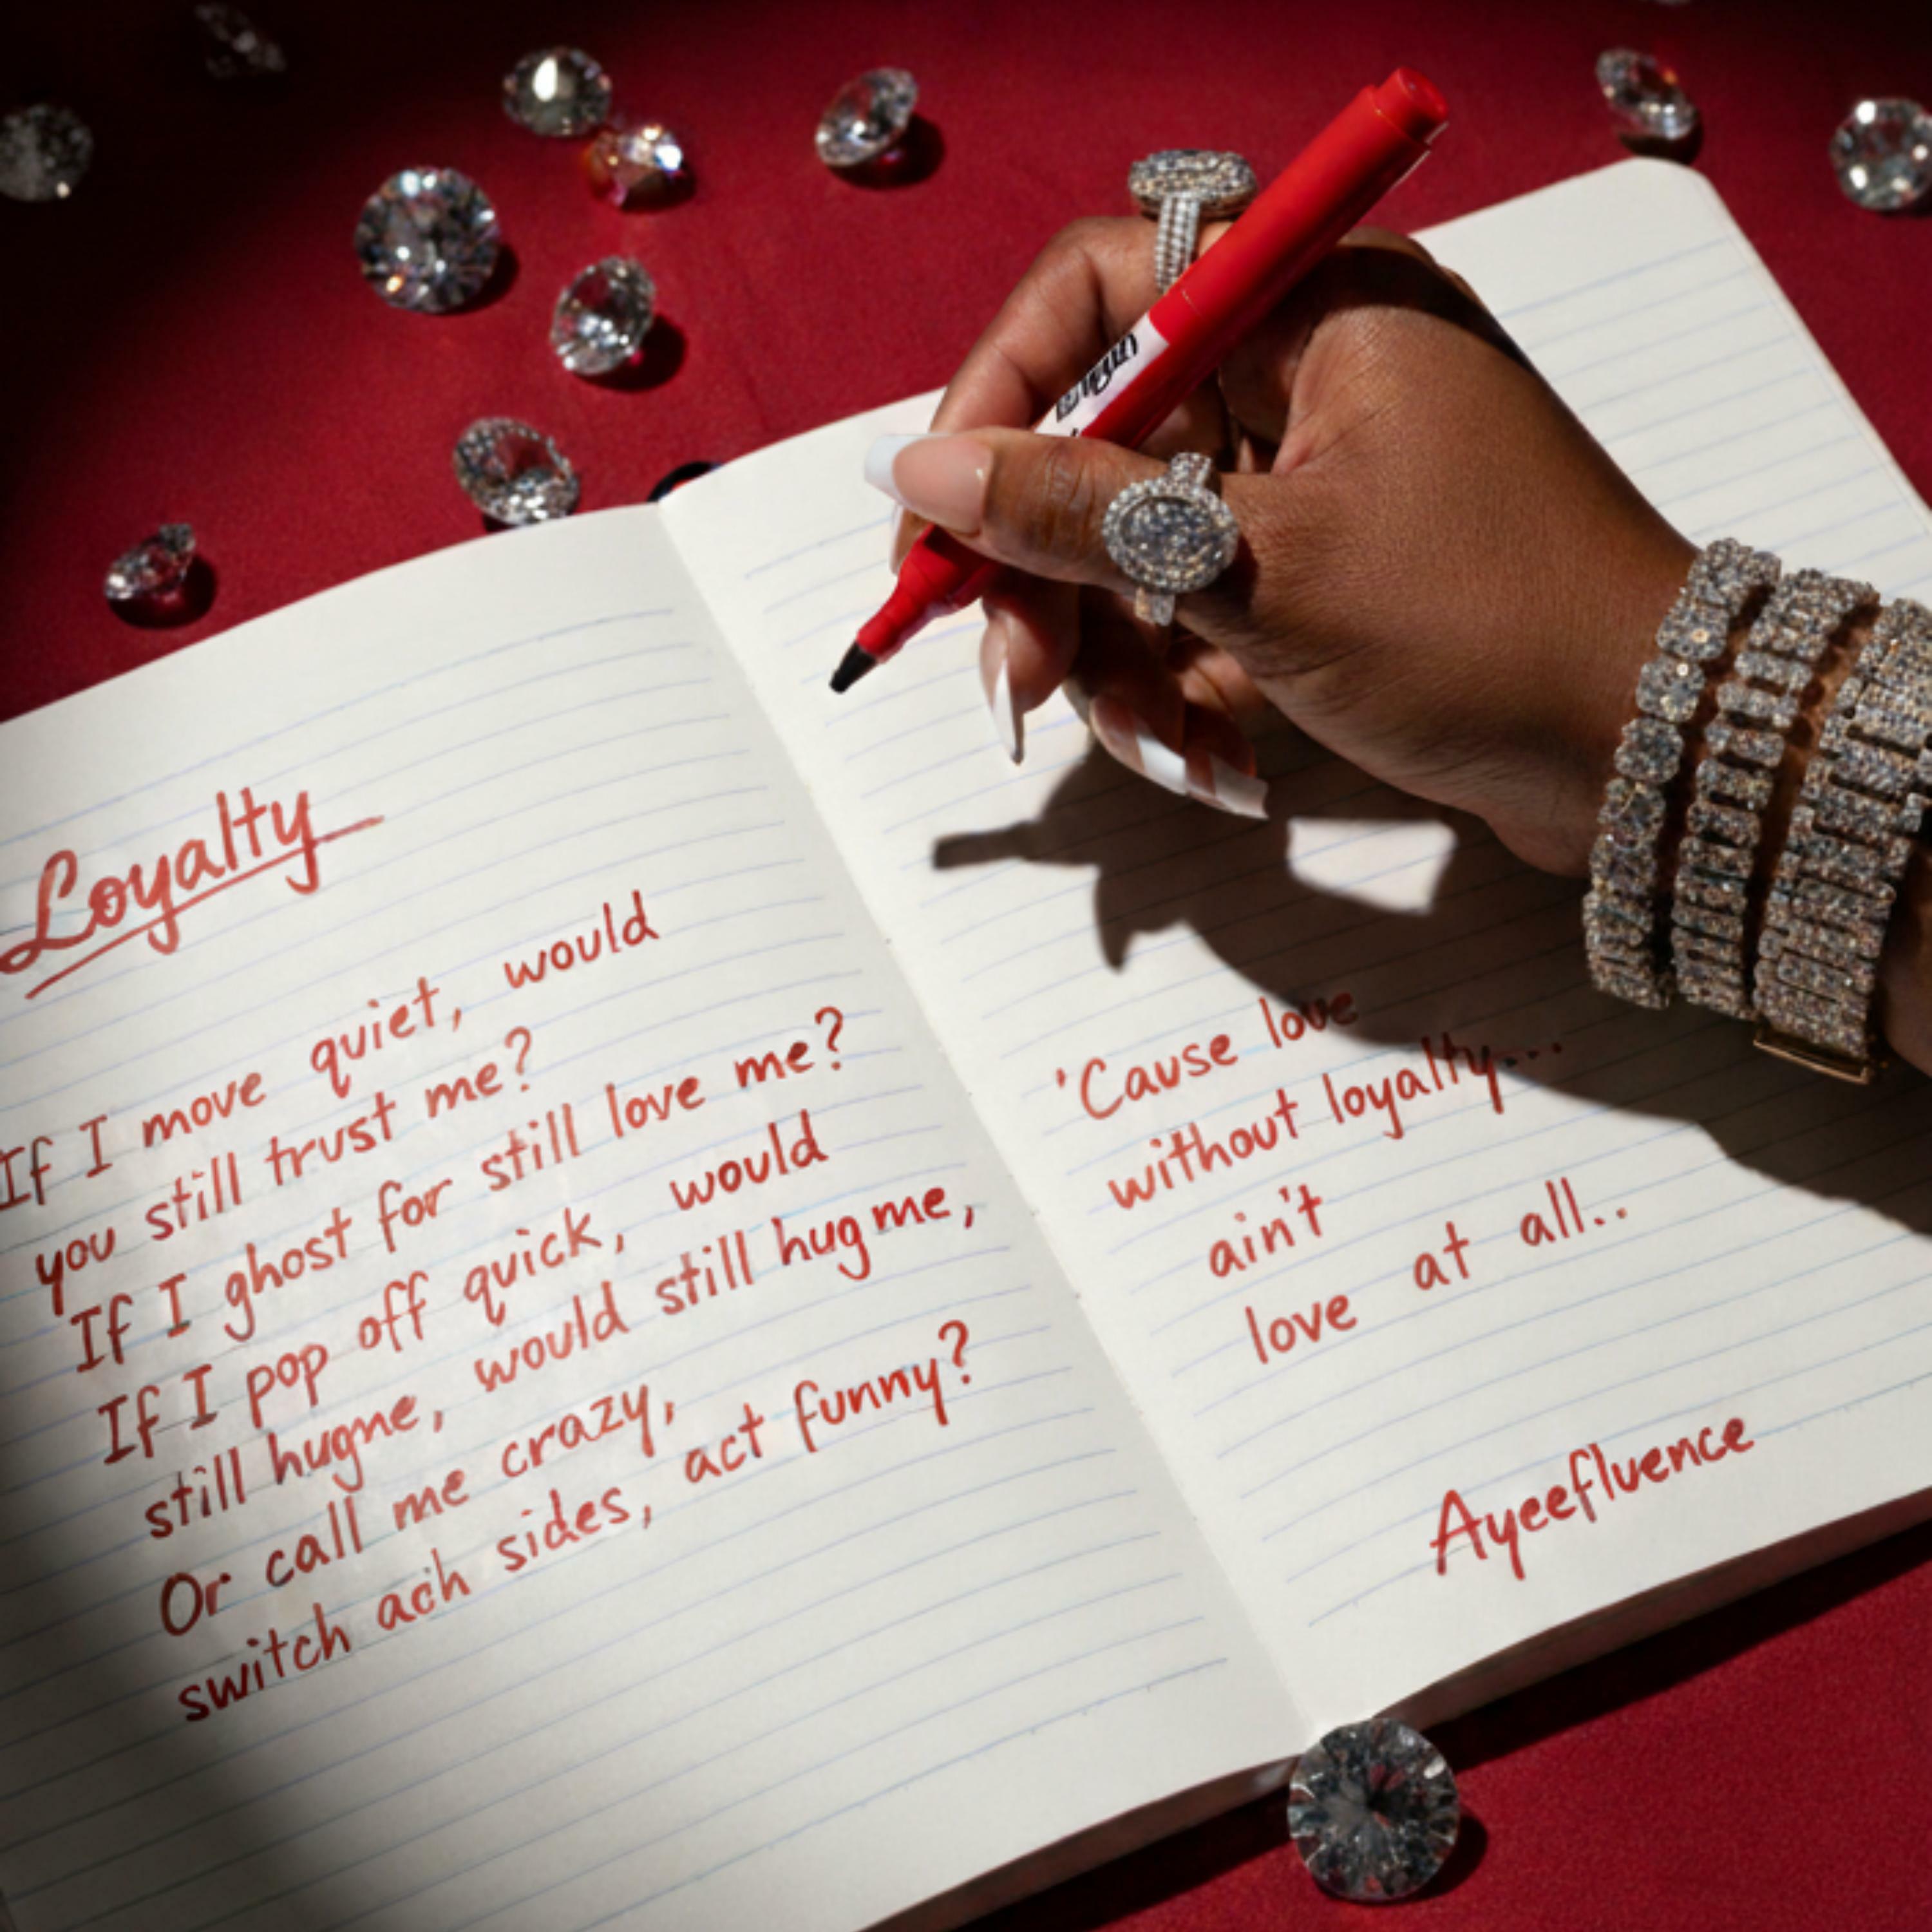 Loyalty
If I move quiet, would
you still trust me?
If I ghost for still love me?
If I pop off quick, would
still hugne, would still hug me,
Or call me crazy,
switch ach sides, act funny?
'Cause love
without loyalty...
ain't
love at all..
Ayeefluence